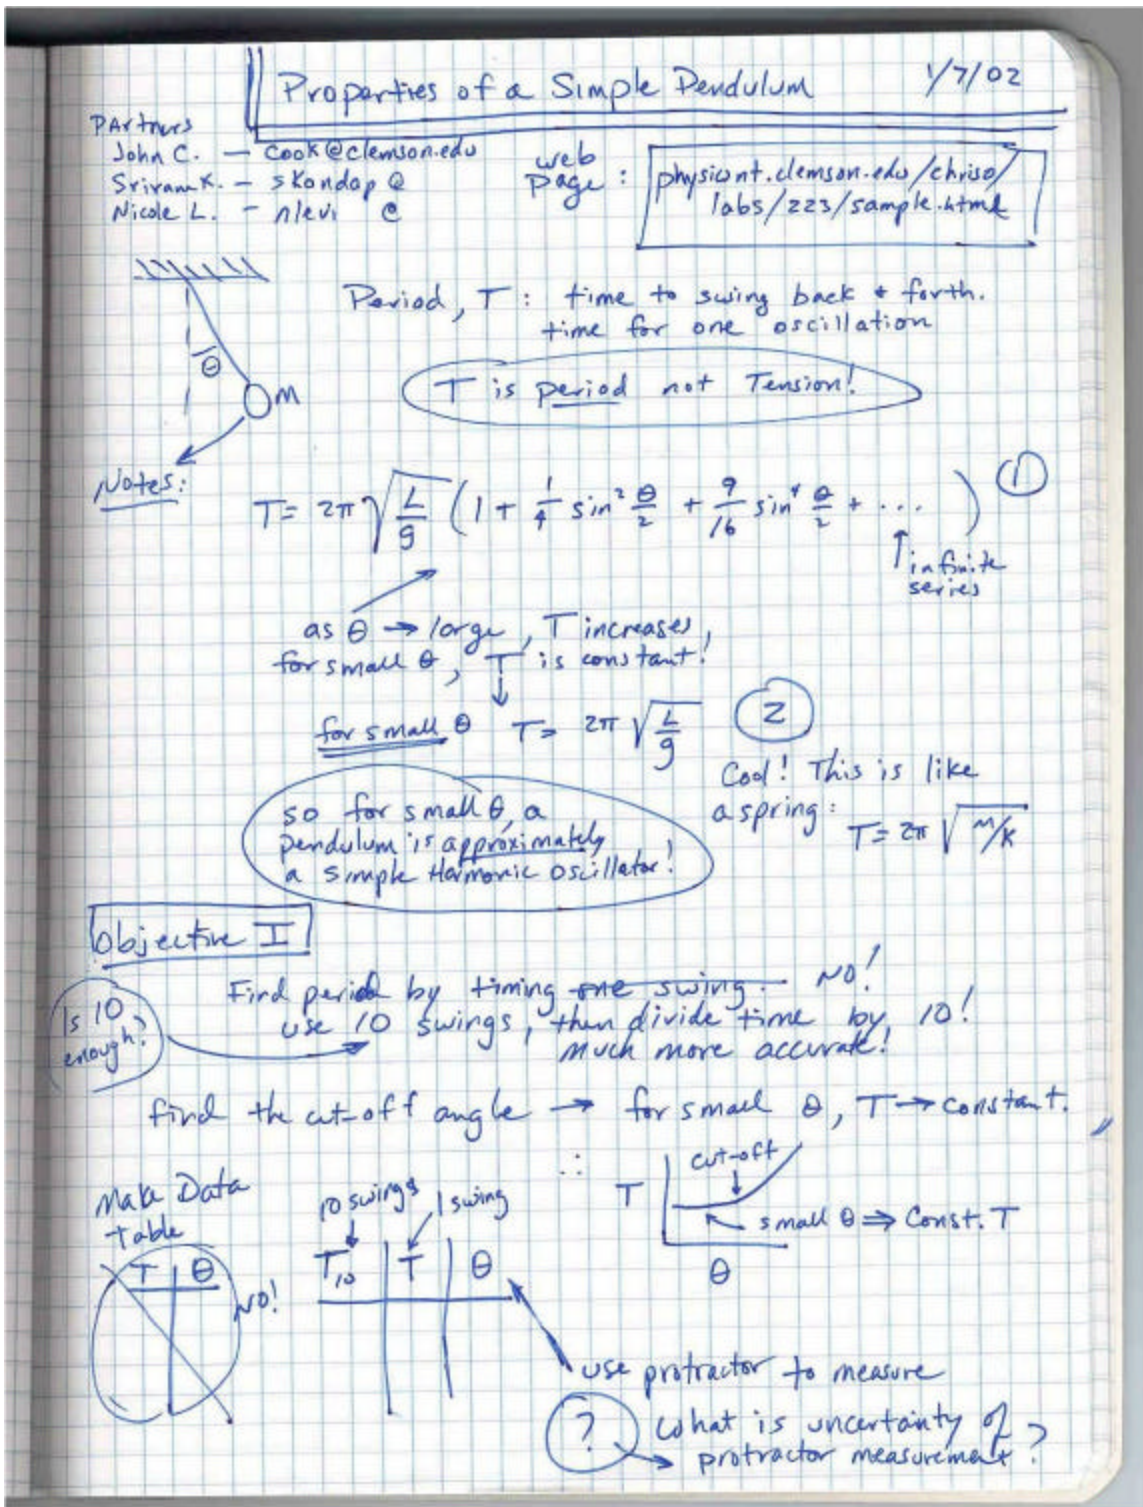 Properties of a Simple Pendulum 1/7/02
Partners
John C. — cook@clemson.edu
Sriram K. — skondap @
Nicole L. — nlevi @
web page : physicnt.clemson.edu/chriso/
labs/223/sample.html
Period, T : time to swing back & forth.
time for one oscillation
θ
M
T is period not Tension!
Notes:
T = 2π √(L/g) (1 + 1/4 sin² θ/2 + 9/16 sin⁴ θ/2 + ... ) ①
infinite
series
as θ → large, T increases,
for small θ, T is constant!
for small θ T = 2π √(L/g) ②
Cool! This is like
a spring: T = 2π √(M/K)
so for small θ, a
pendulum is approximately
a simple Harmonic oscillator!
Objective I
Find period by timing one swing. NO!
Is 10 enough?
use 10 swings, then divide time by 10!
Much more accurate!
find the cut-off angle → for small θ, T → constant.
∴
cut-off
T
small θ ⇒ Const. T
θ
Make Data
table
T θ
NO!
10 swings 1 swing
T₁₀ T θ
use protractor to measure
? What is uncertainty of
protractor measurement?